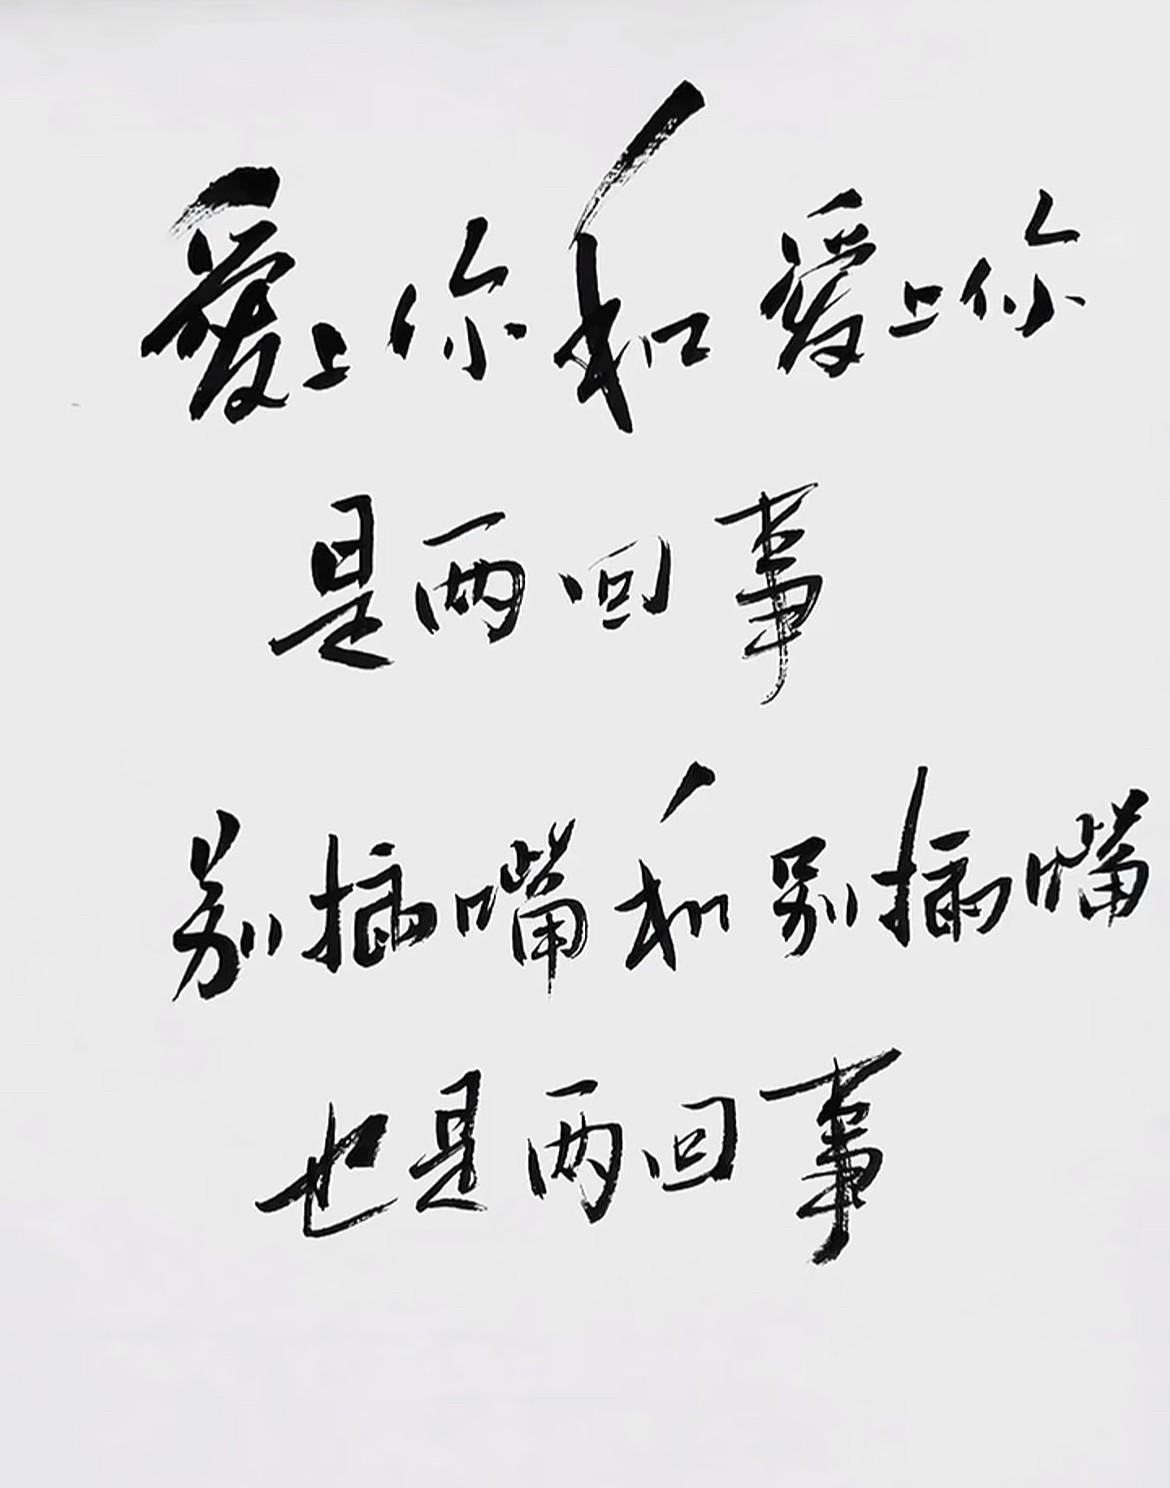 爱上你和爱上你
是两回事
别插嘴和别插嘴
也是两回事